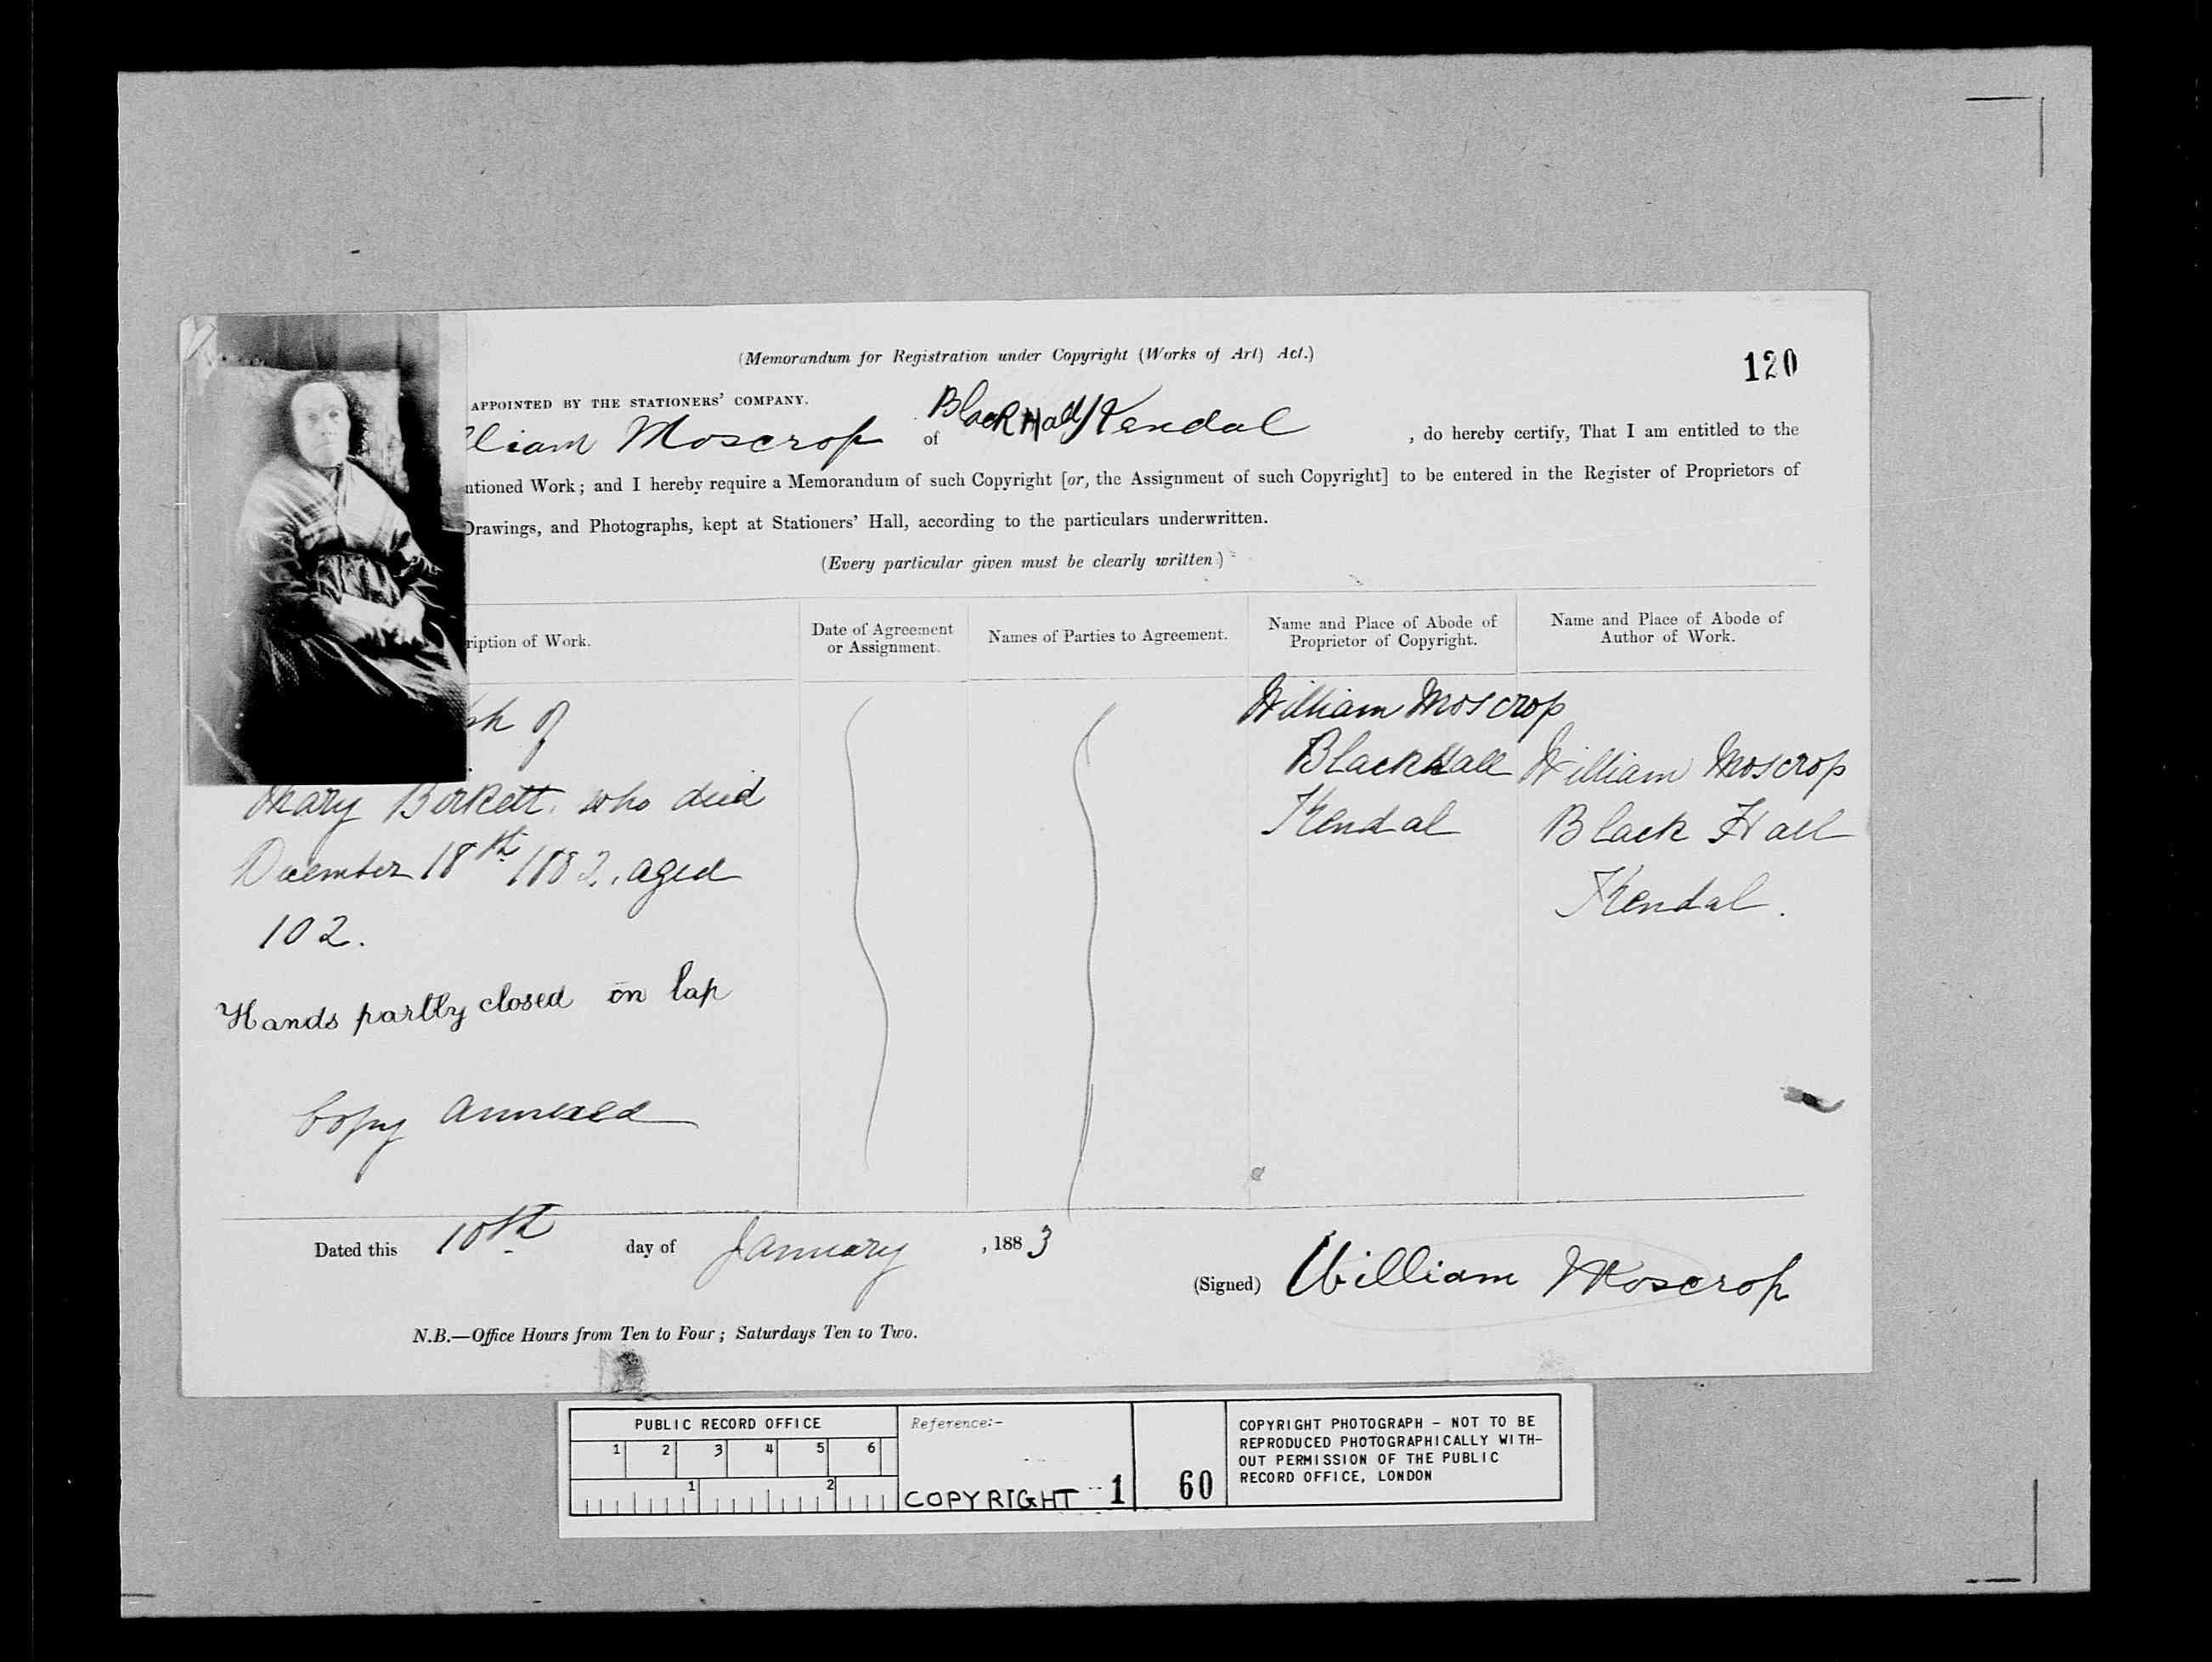 (Memorandum for Registration under Copyright (Works of Art) Act.)
120
APPOINTED BY THE STATIONERS' COMPANY.
lliam Moscrop of Black Hall/Kendal, do hereby certify, That I am entitled to the
ntioned Work; and I hereby require a Memorandum of such Copyright [or, the Assignment of such Copyright] to be entered in the Register of Proprietors of
Drawings, and Photographs, kept at Stationers' Hall, according to the particulars underwritten.
(Every particular given must be clearly written.)
ription of Work.
Date of Agreement
or Assignment.
Names of Parties to Agreement.
Name and Place of Abode of
Proprietor of Copyright.
Name and Place of Abode of
Author of Work.
ph of
Mary Birkett. who died
December 18th 1882, aged
102.
Hands partly closed on lap
Copy annexed
William Moscrop
Black Hall
Kendal
William Moscrop
Black Hall
Kendal.
Dated this 10th day of January, 1883
(Signed) William Moscrop
N.B.—Office Hours from Ten to Four; Saturdays Ten to Two.
PUBLIC RECORD OFFICE
1 2 3 4 5 6
1 2
Reference:-
COPYRIGHT 1
60
COPYRIGHT PHOTOGRAPH - NOT TO BE
REPRODUCED PHOTOGRAPHICALLY WITH-
OUT PERMISSION OF THE PUBLIC
RECORD OFFICE, LONDON